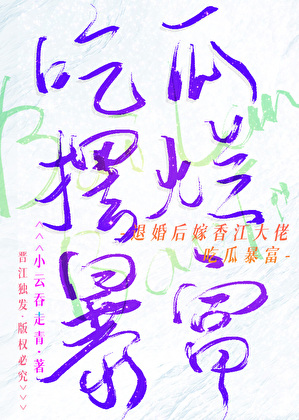 吃瓜
摆烂
暴富
-退婚后嫁香江大佬
吃瓜暴富-
小云吞走青·著
晋江独发·版权必究